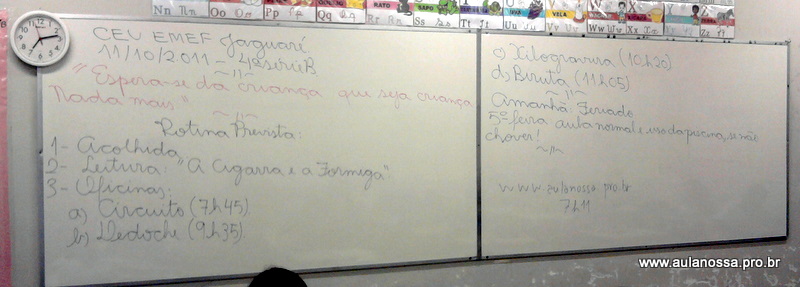 Nn Nn Oo Oo Pp Pp Qq Qq Rr Rr Ss Ss Tt Tt Uu Uu Vv Vv Ww Ww Xx Xx
RATO SAPO VELA
CEU EMEF Jaguaré
11/10/2011 - 4ª série B
"Espera-se da criança que seja criança
Nada mais"
Rotina Prevista:
1- Acolhida
2- Leitura: "A Cigarra e a Formiga"
3- Oficinas:
a) Circuito (7h45)
b) Dedoche (9h35)
c) Xilogravura (10h20)
d) Biruta (11h05)
Amanhã: Feriado
5ª feira aula normal e uso da piscina, se não
chover!
www.aulanossa.pro.br
7h11
www.aulanossa.pro.br